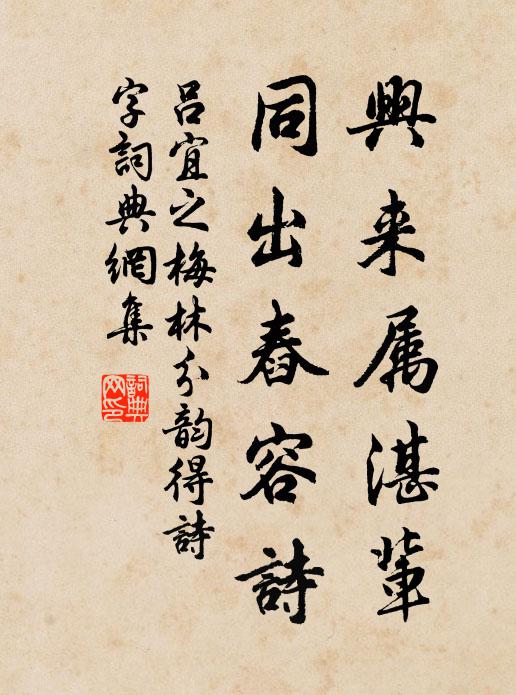 興来属湛輩
同出舂容詩
呂宜之梅林分韵得詩
字詞典網集
詞典网印